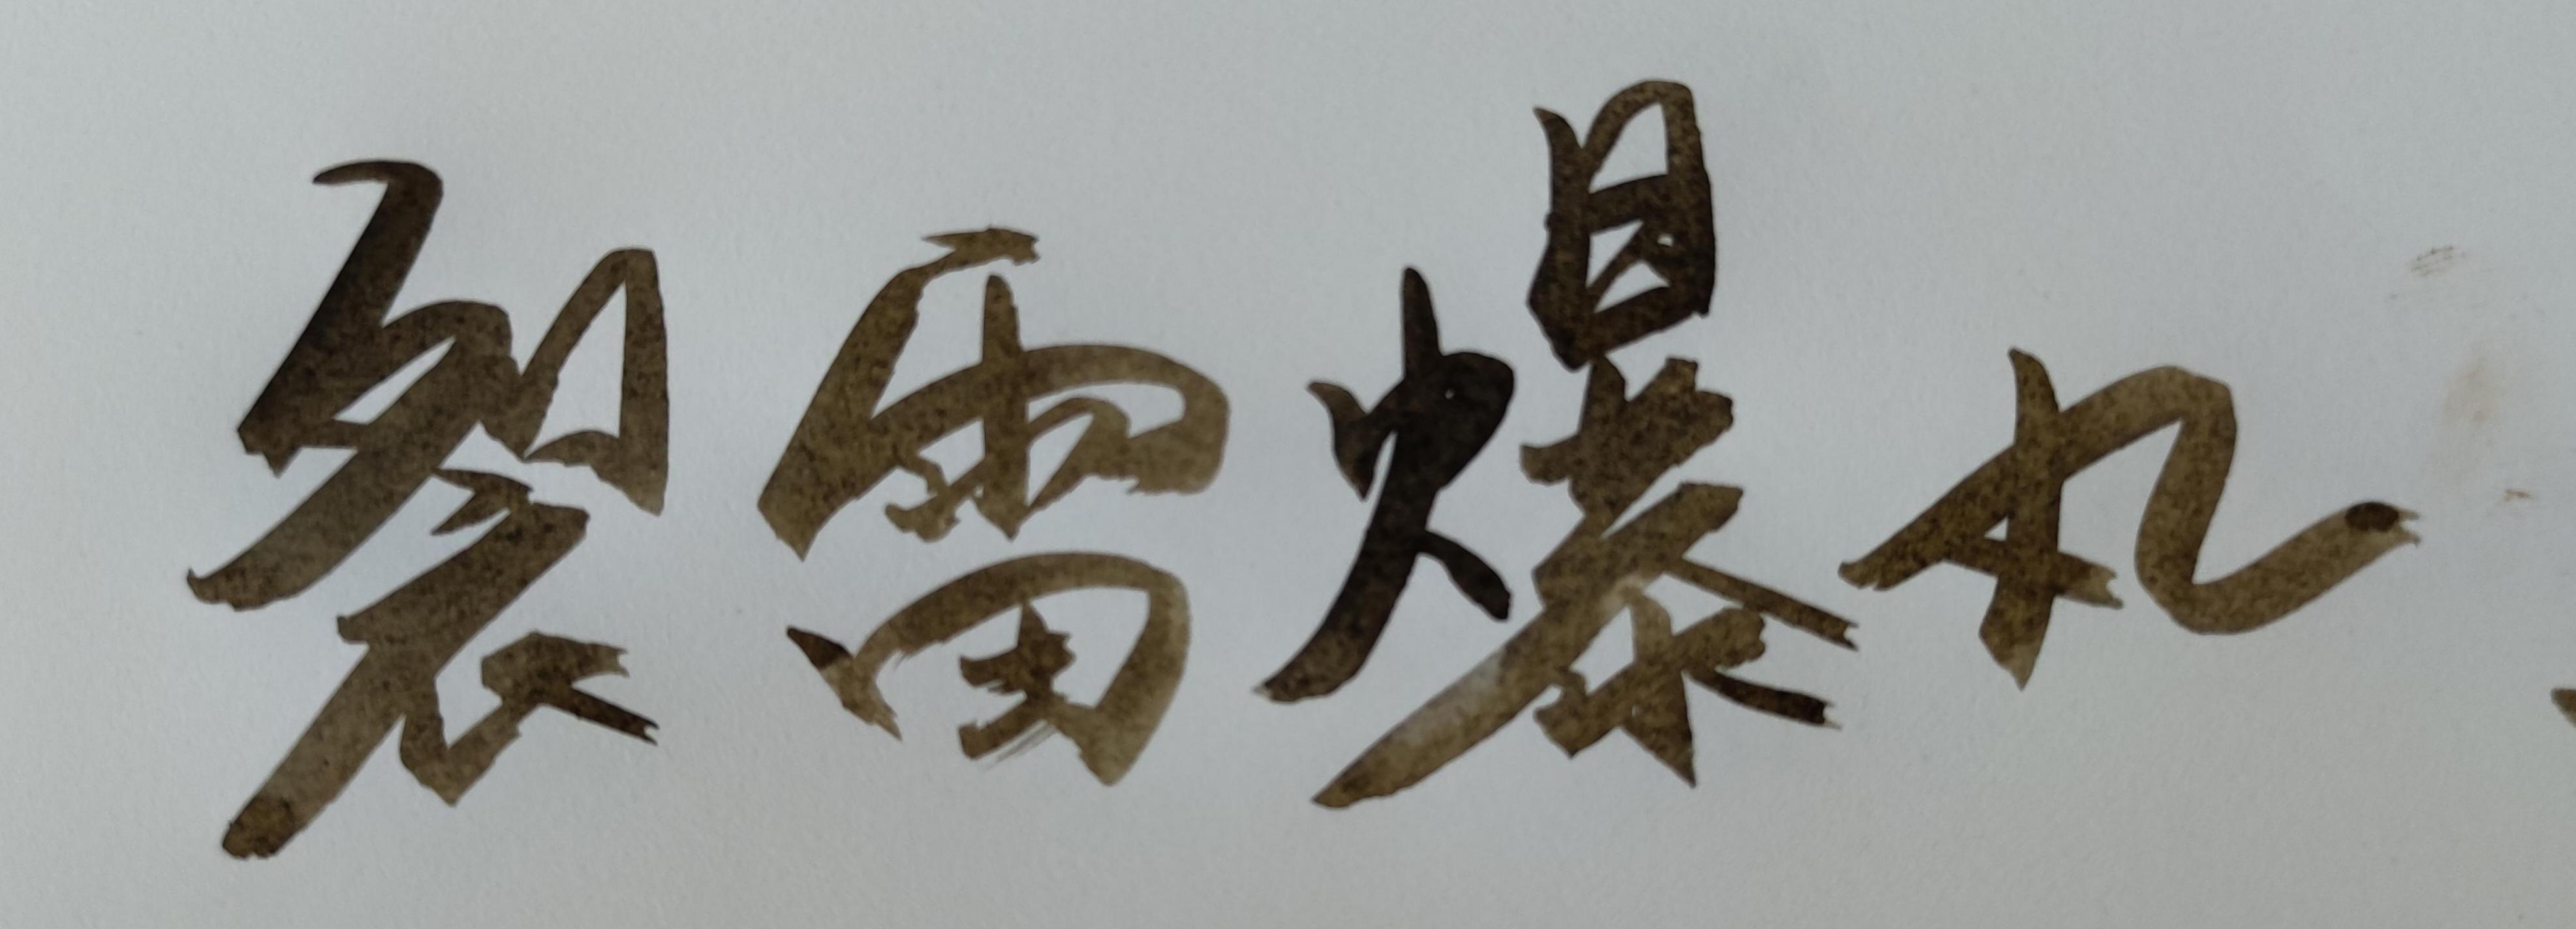 裂雷爆丸